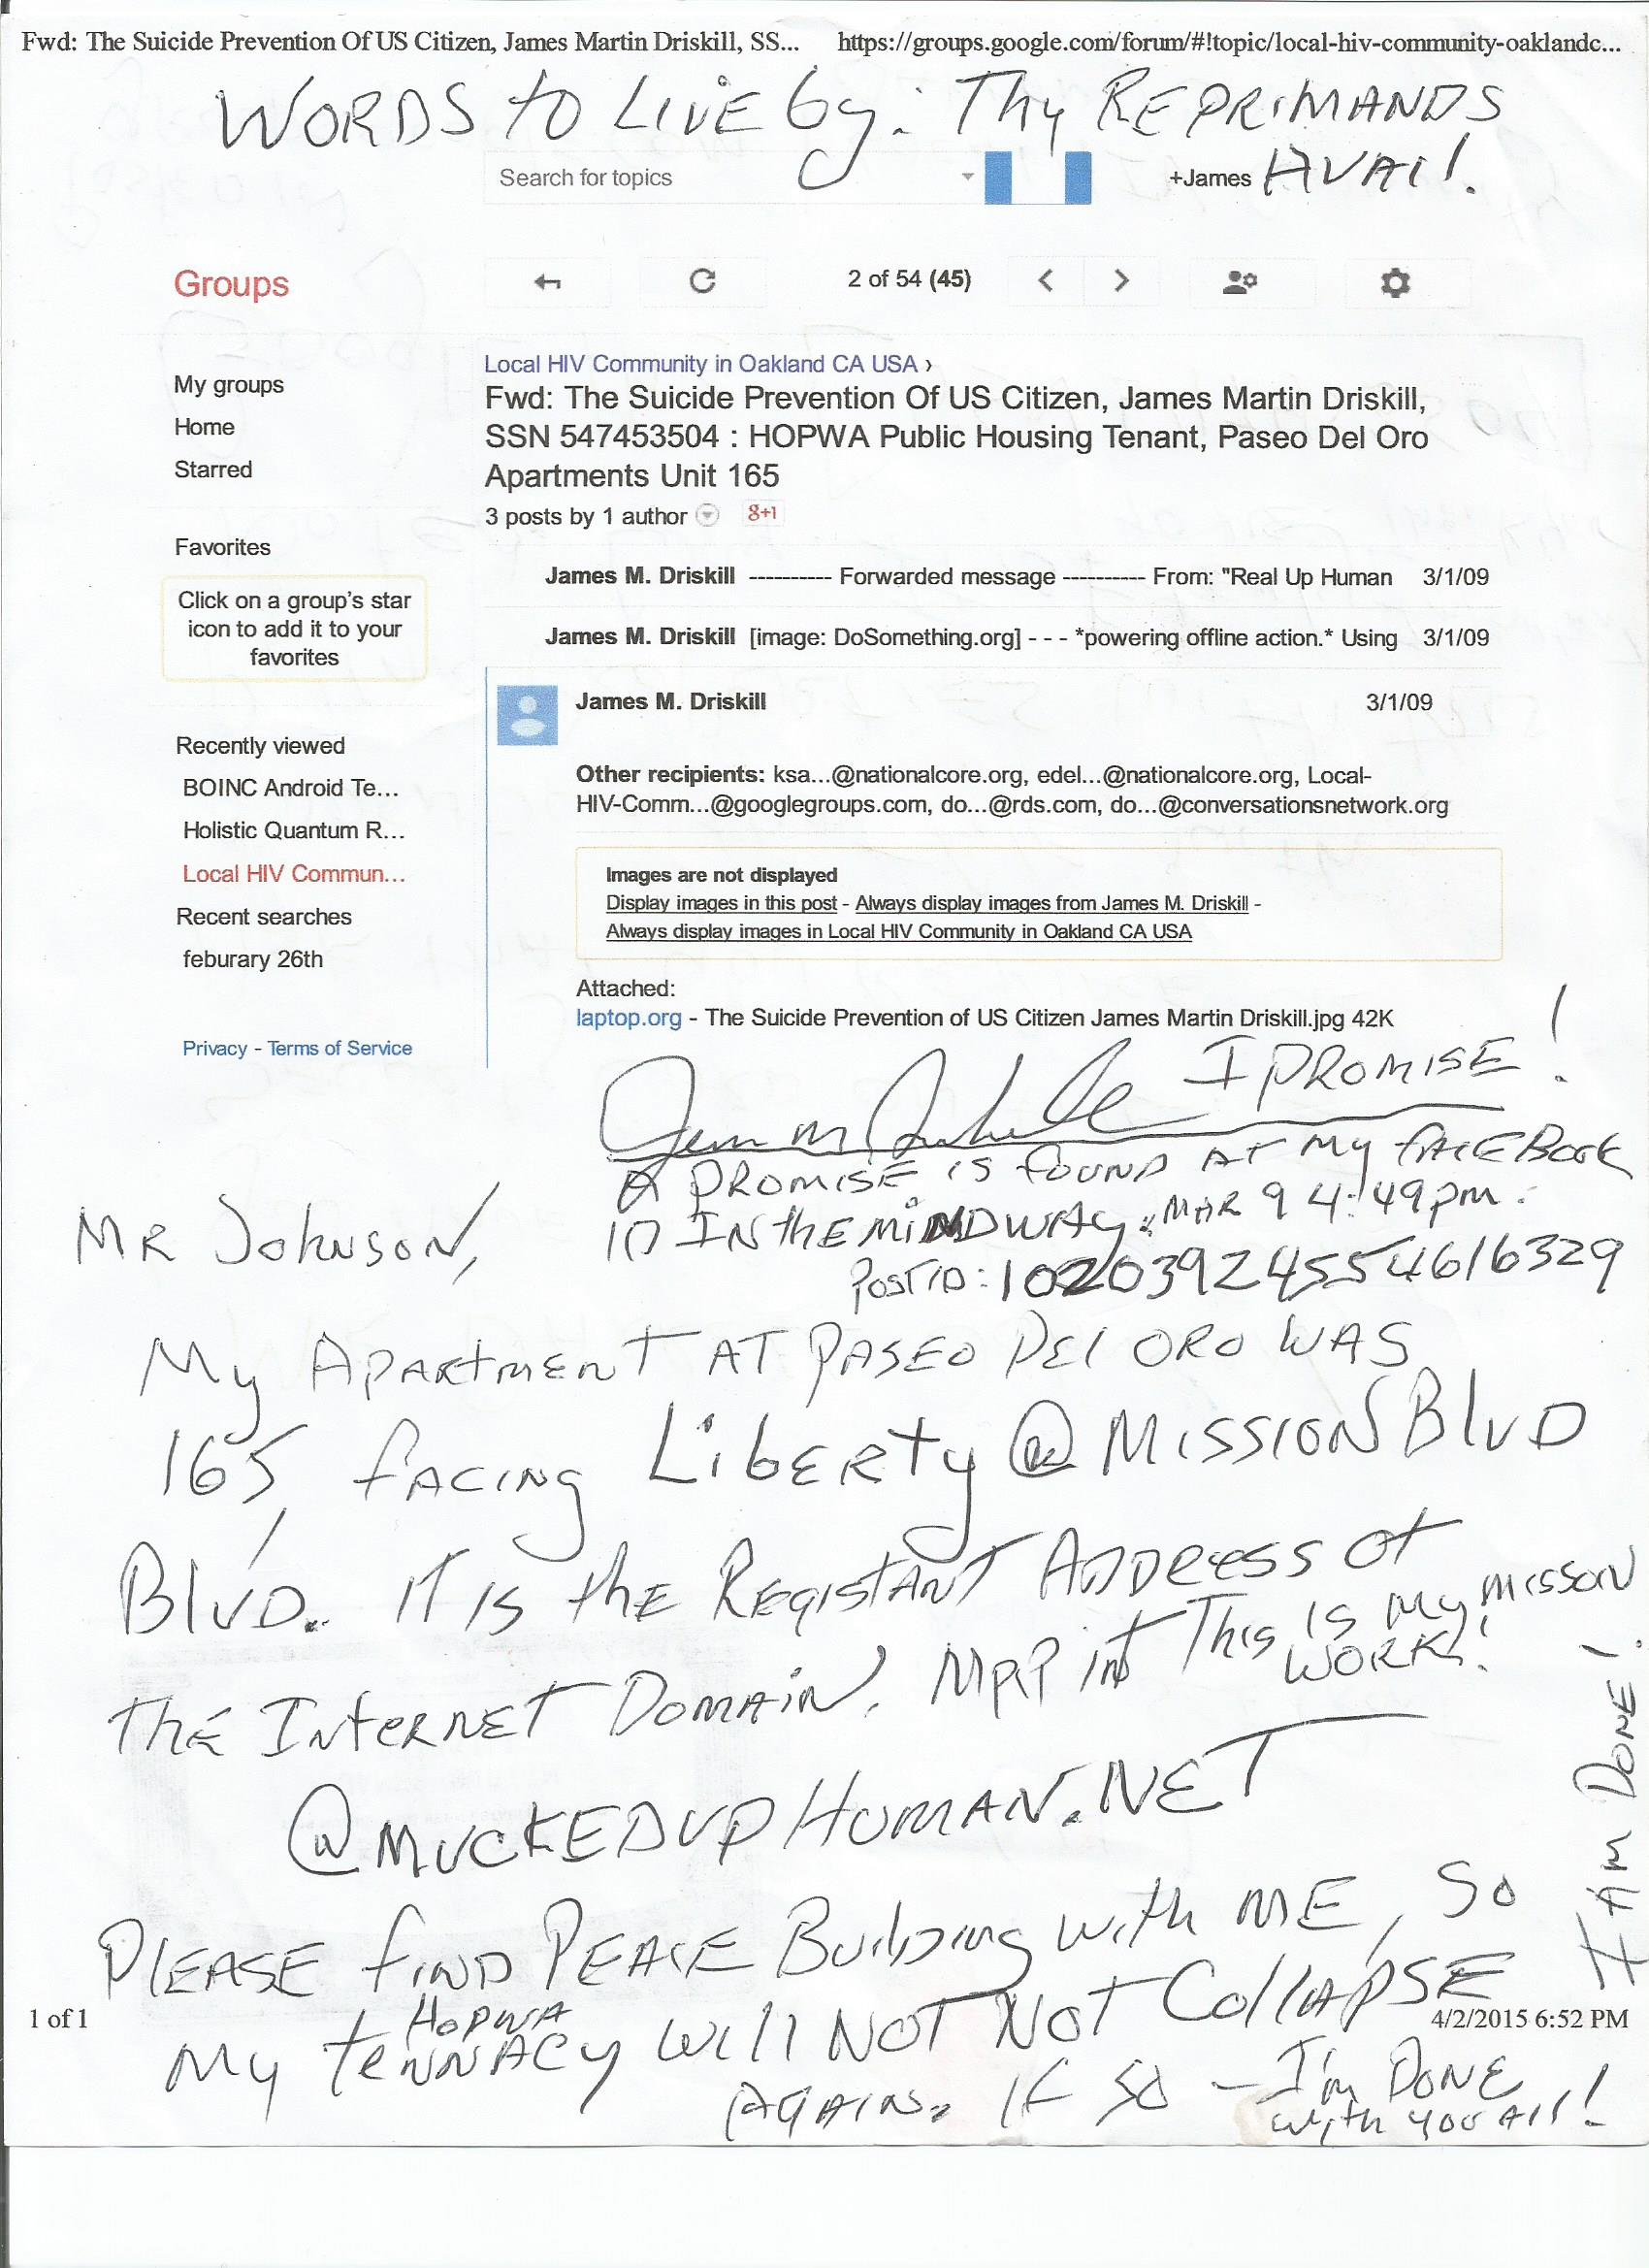 Fwd: The Suicide Prevention Of US Citizen, James Martin Driskill, SS... https://groups.google.com/forum/#!topic/local-hiv-community-oaklandc...
WORDS to LIVE by: Thy REPRIMANDS
Search for topics
+James
AVAIl!
Groups
2 of 54 (45)
My groups
Home
Starred
Favorites
Click on a group's star
icon to add it to your
favorites
Recently viewed
BOINC Android Te...
Holistic Quantum R...
Local HIV Commun...
Recent searches
feburary 26th
Privacy - Terms of Service
Local HIV Community in Oakland CA USA ›
Fwd: The Suicide Prevention Of US Citizen, James Martin Driskill,
SSN 547453504 : HOPWA Public Housing Tenant, Paseo Del Oro
Apartments Unit 165
3 posts by 1 author
8+1
James M. Driskill ---------- Forwarded message ---------- From: "Real Up Human 3/1/09
James M. Driskill [image: DoSomething.org] - - - *powering offline action.* Using 3/1/09
James M. Driskill 3/1/09
Other recipients: ksa...@nationalcore.org, edel...@nationalcore.org, Local-
HIV-Comm...@googlegroups.com, do...@rds.com, do...@conversationsnetwork.org
Images are not displayed
Display images in this post - Always display images from James M. Driskill -
Always display images in Local HIV Community in Oakland CA USA
Attached:
laptop.org - The Suicide Prevention of US Citizen James Martin Driskill.jpg 42K
I PROMISE!
A PROMISE IS FOUND AT My FACEBOOK
ID INTHEMINDWAY: MAR 9 4:49pm:
POST ID: 10203924554616329
MR JOHNSON,
My APARTMENT AT PASEO DEl ORO WAS
165, FACING LiBERTy @ MISSION BlVD
BlVD.. IT IS thE REGISTANT ADDRESS Of
THE INTERNET DOMAIN. MAP int This IS My MISSON
WORK!
@MUCKEDUPHUMAN.NET
PLEASE FIND PEACE BuilDing with ME, SO
My HOPWA tENNACy Will NOT NOT COllAPSE
AGAIN. If SO - I'm DONE
with you All!
I AM DONE!
1 of 1
4/2/2015 6:52 PM